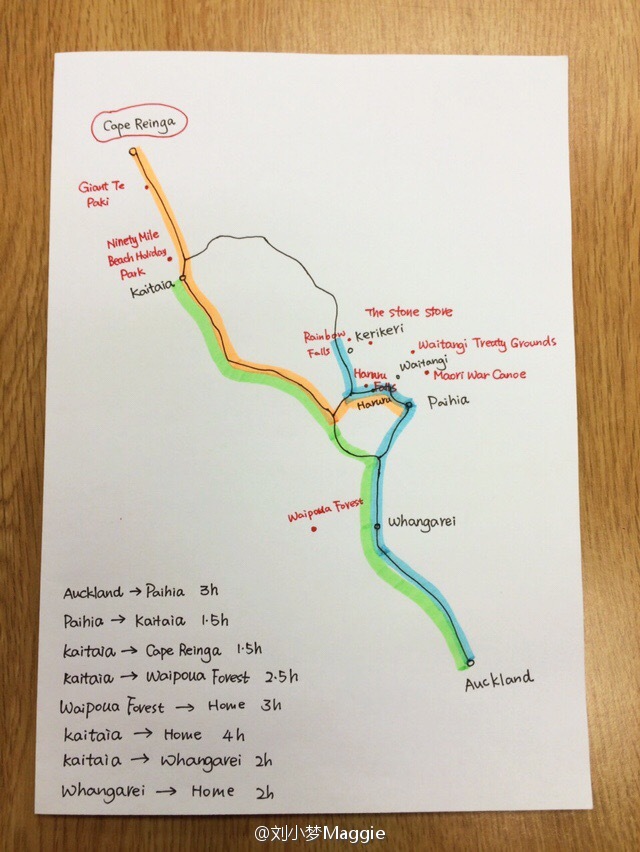 Cape Reinga
Giant Te
Paki
Ninety Mile
Beach Holiday
Park
Kaitaia
The stone store
Rainbow
Falls
Kerikeri
Waitangi Treaty Grounds
Waitangi
Haruru
Falls
Maori War Canoe
Haruru
Paihia
Waipoua Forest
Whangarei
Auckland
Auckland → Paihia 3h
Paihia → Kaitaia 1.5h
Kaitaia → Cape Reinga 1.5h
Kaitaia → Waipoua Forest 2.5h
Waipoua Forest → Home 3h
Kaitaia → Home 4h
Kaitaia → Whangarei 2h
Whangarei → Home 2h
@刘小梦Maggie